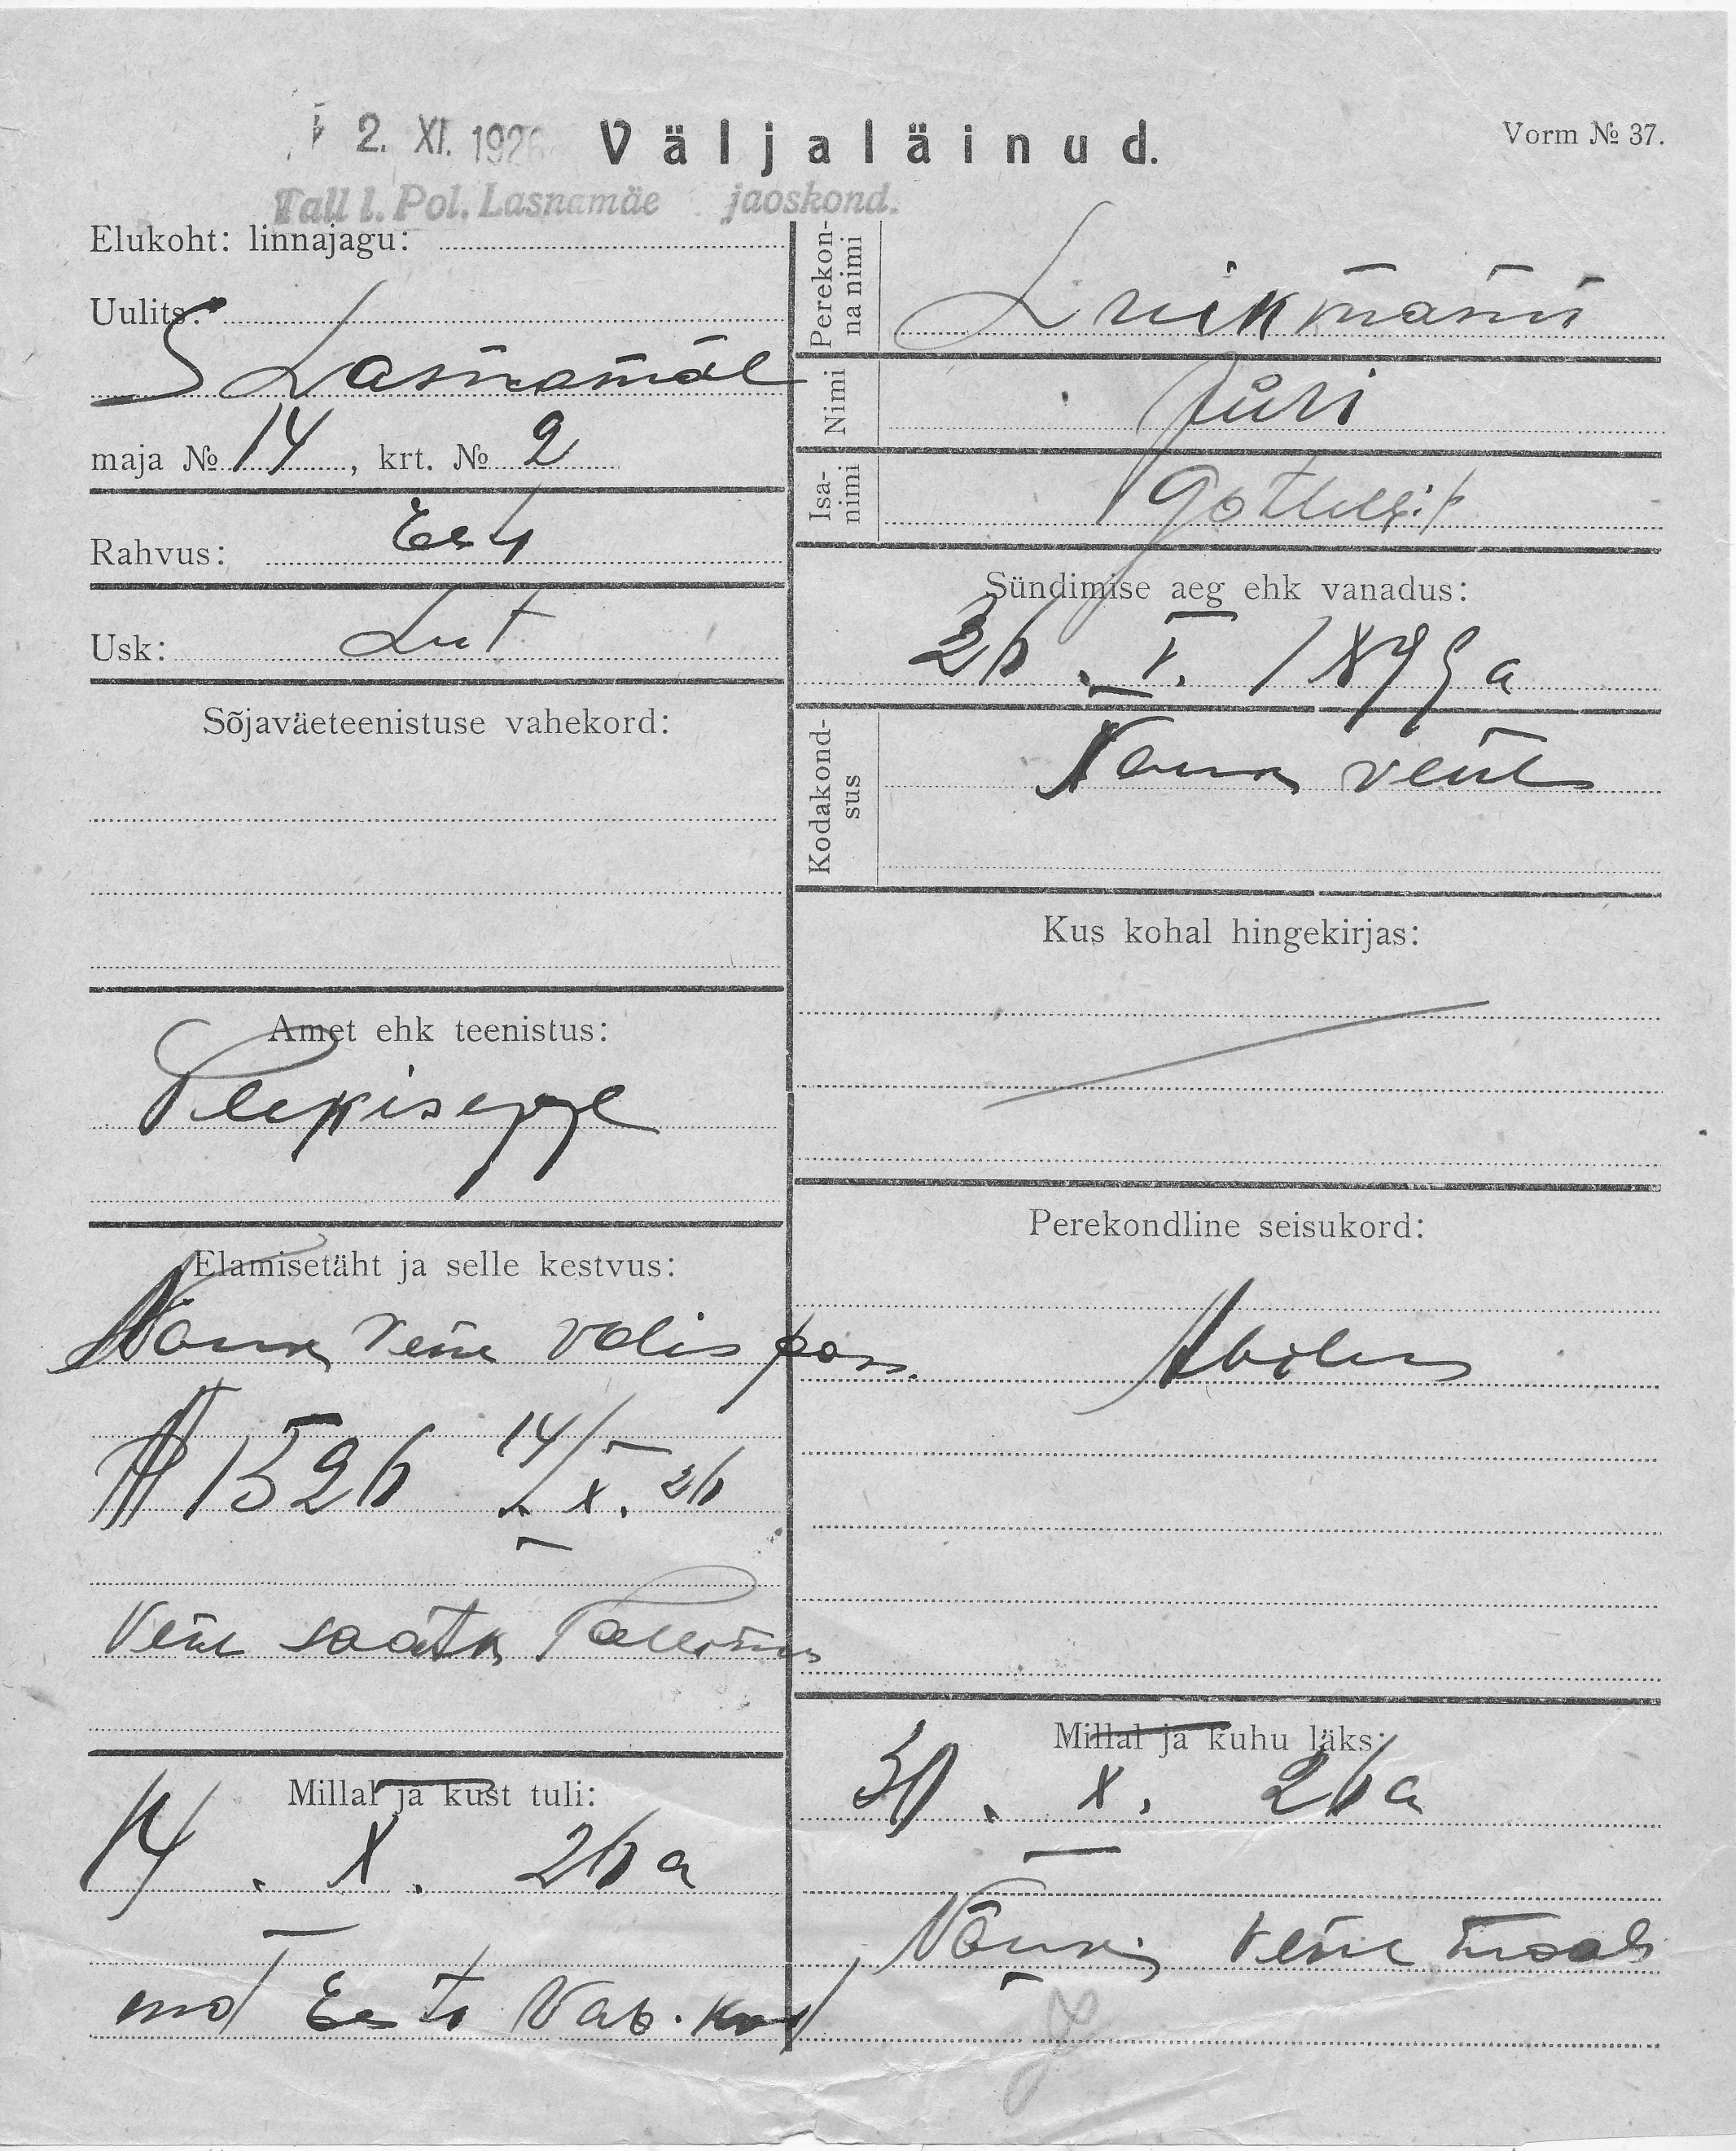 2. XI. 1926
Väljaläinud.
Vorm № 37.
Tall l. Pol. Lasnamäe jaoskond.
Elukoht: linnajagu:
Uulits:
S Lasnamäe
maja № 14, krt. № 2
Rahvus: Eest
Usk: Lut
Sõjaväeteenistuse vahekord:
Amet ehk teenistus:
Plekisepp
Elamisetäht ja selle kestvus:
Nõuk Vene välis pass.
№ 1526 14/X. 26
Vene saatk Tallinnas
Millal ja kust tuli:
14. X. 26 a
Eesti Vab.
Perekonna nimi
Luikmann
Nimi
Jüri
Isanimi
Gottleib
Sündimise aeg ehk vanadus:
26. V. 1895 a
Kodakondsus
Nõuk vene
Kus kohal hingekirjas:
Perekondline seisukord:
Abielus
Millal ja kuhu läks:
30. X. 26 a
Nõuk. Vene maale